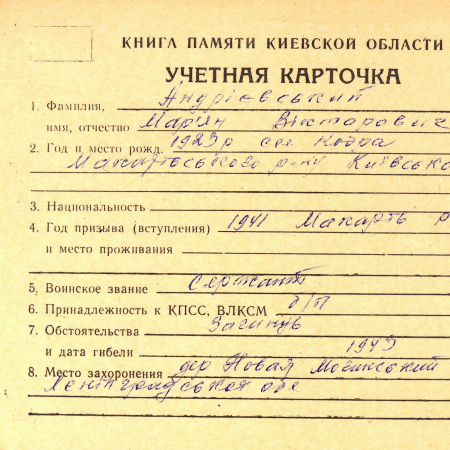 КНИГА ПАМЯТИ КИЕВСКОЙ ОБЛАСТИ
УЧЕТНАЯ КАРТОЧКА
1. Фамилия, Андрієвський
имя, отчество Мар'ян Вікторович
2. Год и место рожд. 1923 р сел Кодра
Макарівського р-ну Київсько
3. Национальность
4. Год призыва (вступления) 1941 Макарів р
и место проживания
5. Воинское звание Сержант
6. Принадлежность к КПСС, ВЛКСМ б/п
7. Обстоятельства Загинув
и дата гибели 1943
8. Место захоронения дер Новая
Ленінградська обл